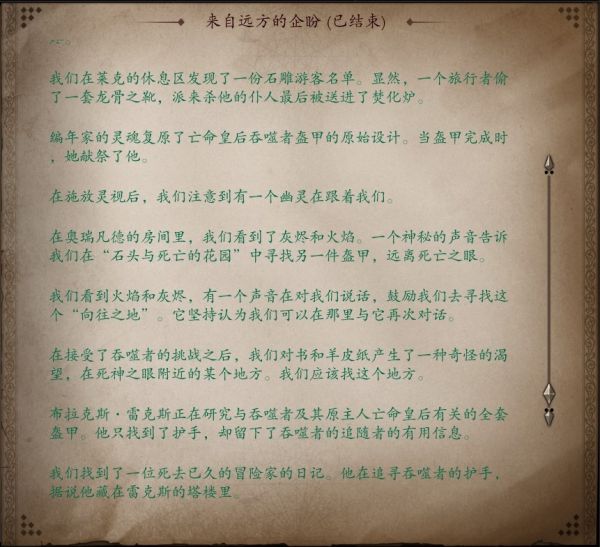 来自远方的企盼 (已结束)
我们在莱克的休息区发现了一份石雕游客名单。显然，一个旅行者偷
了一套龙骨之靴，派来杀他的仆人最后被送进了焚化炉。
编年家的灵魂复原了亡命皇后吞噬者盔甲的原始设计。当盔甲完成时
，她献祭了他。
在施放灵视后，我们注意到有一个幽灵在跟着我们。
在奥瑞凡德的房间里，我们看到了灰烬和火焰。一个神秘的声音告诉
我们在“石头与死亡的花园”中寻找另一件盔甲，远离死亡之眼。
我们看到火焰和灰烬，有一个声音在对我们说话，鼓励我们去寻找这
个“向往之地”。它坚持认为我们可以在那里与它再次对话。
在接受了吞噬者的挑战之后，我们对书和羊皮纸产生了一种奇怪的渴
望，在死神之眼附近的某个地方。我们应该找这个地方。
布拉克斯·雷克斯正在研究与吞噬者及其原主人亡命皇后有关的全套
盔甲。他只找到了护手，却留下了吞噬者的追随者的有用信息。
我们找到了一位死去已久的冒险家的日记。他在追寻吞噬者的护手，
据说他藏在雷克斯的塔楼里。